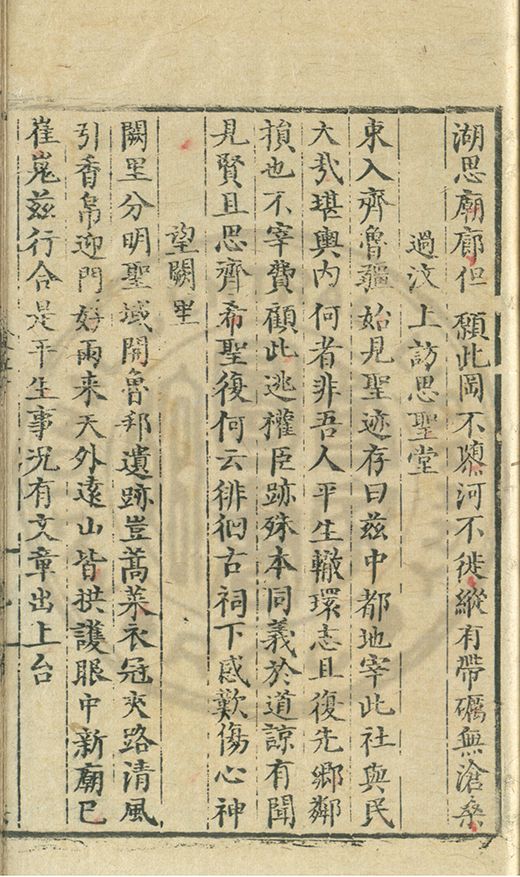 湖思廟廊但願此岡不隳河不徙縱有帶礪無滄桑
過汶上訪思聖堂
東入齊魯疆始見聖迹存曰茲中都地宰此社與民
大哉堪輿内何者非吾人平生轍環志且復先鄉鄰
損也不宰費顧此逃權臣跡殊本同義於道諒有聞
見賢且思齊希聖復何云徘徊古祠下感歎傷心神
望闕里
闕里分明聖域開魯邦遺跡豈蒿萊衣冠夾路清風
引香帛迎門好雨来天外遠山皆拱護眼中新廟已
崔嵬兹行合是平生事况有文章出上台